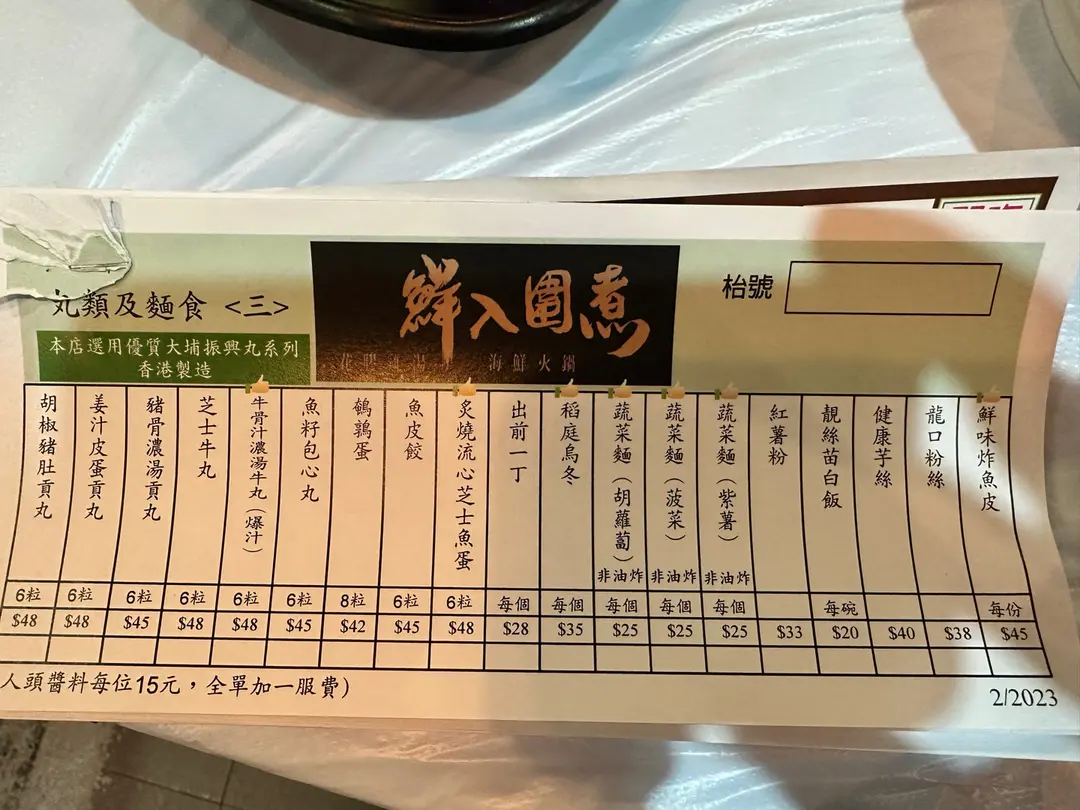 丸類及麵食 <三>
鮮入圍煮
海鮮火鍋
枱號
本店選用優質大埔振興丸系列
香港製造
胡椒豬肚貢丸 6粒 $48
姜汁皮蛋貢丸 6粒 $48
豬骨濃湯貢丸 6粒 $45
芝士牛丸 6粒 $48
牛骨汁濃湯牛丸（爆汁） 6粒 $48
魚籽包心丸 6粒 $45
鵪鶉蛋 8粒 $42
魚皮餃 6粒 $45
炙燒流心芝士魚蛋 6粒 $48
出前一丁 每個 $28
稻庭烏冬 每個 $35
蔬菜麵（胡蘿蔔）非油炸 每個 $25
蔬菜麵（菠菜）非油炸 每個 $25
蔬菜麵（紫薯）非油炸 每個 $25
紅薯粉 $33
靚絲苗白飯 每碗 $20
健康芋絲 $40
龍口粉絲 $38
鮮味炸魚皮 每份 $45
人頭醬料每位15元，全單加一服費)
2/2023